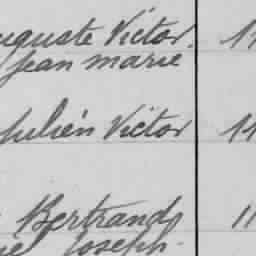 Auguste Victor. 11
Jean marie
Julien Victor 11
Bertrand 11
Joseph.